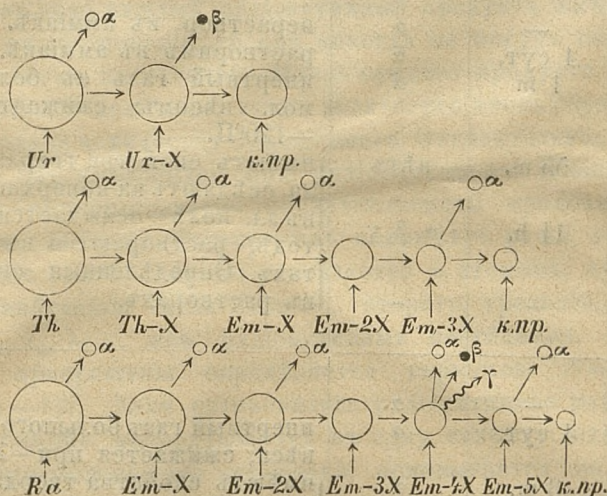 α β
Ur Ur-X к.пр.
α α α α
Th Th-X Em-X Em-2X Em-3X к.пр.
α α α α β γ α
Ra Em-X Em-2X Em-3X Em-4X Em-5X к.пр.